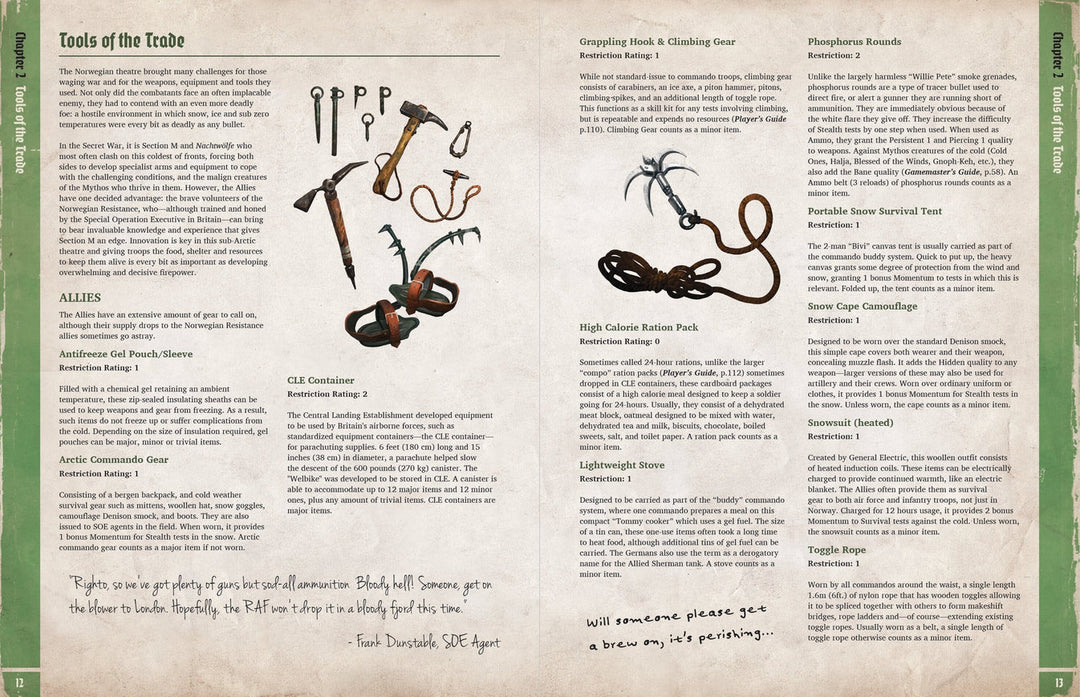 Chapter 2 Tools of the Trade
Tools of the Trade
The Norwegian theatre brought many challenges for those
waging war and for the weapons, equipment and tools they
used. Not only did the combatants face an often implacable
enemy, they had to contend with an even more deadly
foe: a hostile environment in which snow, ice and sub zero
temperatures were every bit as deadly as any bullet.
In the Secret War, it is Section M and Nachtwölfe who
most often clash on this coldest of fronts, forcing both
sides to develop specialist arms and equipment to cope
with the challenging conditions, and the malign creatures
of the Mythos who thrive in them. However, the Allies
have one decided advantage: the brave volunteers of the
Norwegian Resistance, who—although trained and honed
by the Special Operation Executive in Britain—can bring
to bear invaluable knowledge and experience that gives
Section M an edge. Innovation is key in this sub-Arctic
theatre and giving troops the food, shelter and resources
to keep them alive is every bit as important as developing
overwhelming and decisive firepower.
ALLIES
The Allies have an extensive amount of gear to call on,
although their supply drops to the Norwegian Resistance
allies sometimes go astray.
Antifreeze Gel Pouch/Sleeve
Restriction Rating: 1
Filled with a chemical gel retaining an ambient
temperature, these zip-sealed insulating sheaths can be
used to keep weapons and gear from freezing. As a result,
such items do not freeze up or suffer complications from
the cold. Depending on the size of insulation required, gel
pouches can be major, minor or trivial items.
Arctic Commando Gear
Restriction Rating: 1
Consisting of a bergen backpack, and cold weather
survival gear such as mittens, woollen hat, snow goggles,
camouflage Denison smock, and boots. They are also
issued to SOE agents in the field. When worn, it provides
1 bonus Momentum for Stealth tests in the snow. Arctic
commando gear counts as a major item if not worn.
CLE Container
Restriction Rating: 2
The Central Landing Establishment developed equipment
to be used by Britain's airborne forces, such as
standardized equipment containers—the CLE container—
for parachuting supplies. 6 feet (180 cm) long and 15
inches (38 cm) in diameter, a parachute helped slow
the descent of the 600 pounds (270 kg) canister. The
"Welbike" was developed to be stored in CLE. A canister is
able to accommodate up to 12 major items and 12 minor
ones, plus any amount of trivial items. CLE containers are
major items.
"Righto, so we've got plenty of guns but sod-all ammunition. Bloody hell! Someone, get on
the blower to London. Hopefully, the RAF won't drop it in a bloody fjord this time."
- Frank Dunstable, SOE Agent
12
Grappling Hook & Climbing Gear
Restriction Rating: 1
While not standard-issue to commando troops, climbing gear
consists of carabiners, an ice axe, a piton hammer, pitons,
climbing-spikes, and an additional length of toggle rope.
This functions as a skill kit for any tests involving climbing,
but is repeatable and expends no resources (Player's Guide
p.110). Climbing Gear counts as a minor item.
High Calorie Ration Pack
Restriction Rating: 0
Sometimes called 24-hour rations, unlike the larger
“compo” ration packs (Player's Guide, p.112) sometimes
dropped in CLE containers, these cardboard packages
consist of a high calorie meal designed to keep a soldier
going for 24-hours. Usually, they consist of a dehydrated
meat block, oatmeal designed to be mixed with water,
dehydrated tea and milk, biscuits, chocolate, boiled
sweets, salt, and toilet paper. A ration pack counts as a
minor item.
Lightweight Stove
Restriction Rating: 1
Designed to be carried as part of the “buddy” commando
system, where one commando prepares a meal on this
compact “Tommy cooker” which uses a gel fuel. The size
of a tin can, these one-use items often took a long time
to heat food, although additional tins of gel fuel can be
carried. The Germans also use the term as a derogatory
name for the Allied Sherman tank. A stove counts as a
minor item.
Will someone please get
a brew on, it's perishing...
Phosphorus Rounds
Restriction: 2
Unlike the largely harmless “Willie Pete” smoke grenades,
phosphorus rounds are a type of tracer bullet used to
direct fire, or alert a gunner they are running short of
ammunition. They are immediately obvious because of
the white flare they give off. They increase the difficulty
of Stealth tests by one step when used. When used as
Ammo, they grant the Persistent 1 and Piercing 1 quality
to weapons. Against Mythos creatures of the cold (Cold
Ones, Halja, Blessed of the Winds, Gnoph-Keh, etc.), they
also add the Bane quality (Gamemaster's Guide, p.58). An
Ammo belt (3 reloads) of phosphorus rounds counts as a
minor item.
Portable Snow Survival Tent
Restriction: 1
The 2-man “Bivi” canvas tent is usually carried as part of
the commando buddy system. Quick to put up, the heavy
canvas grants some degree of protection from the wind and
snow, granting 1 bonus Momentum to tests in which this is
relevant. Folded up, the tent counts as a minor item.
Snow Cape Camouflage
Restriction: 1
Designed to be worn over the standard Denison smock,
this simple cape covers both wearer and their weapon,
concealing muzzle flash. It adds the Hidden quality to any
weapon—larger versions of these may also be used for
artillery and their crews. Worn over ordinary uniform or
clothes, it provides 1 bonus Momentum for Stealth tests in
the snow. Unless worn, the cape counts as a minor item.
Snowsuit (heated)
Restriction: 1
Created by General Electric, this woollen outfit consists
of heated induction coils. These items can be electrically
charged to provide continued warmth, like an electric
blanket. The Allies often provide them as survival
gear to both air force and infantry troops, not just in
Norway. Charged for 12 hours usage, it provides 2 bonus
Momentum to Survival tests against the cold. Unless worn,
the snowsuit counts as a minor item.
Toggle Rope
Restriction: 1
Worn by all commandos around the waist, a single length
1.6m (6ft.) of nylon rope that has wooden toggles allowing
it to be spliced together with others to form makeshift
bridges, rope ladders and—of course—extending existing
toggle ropes. Usually worn as a belt, a single length of
toggle rope otherwise counts as a minor item.
Chapter 2 Tools of the Trade
13